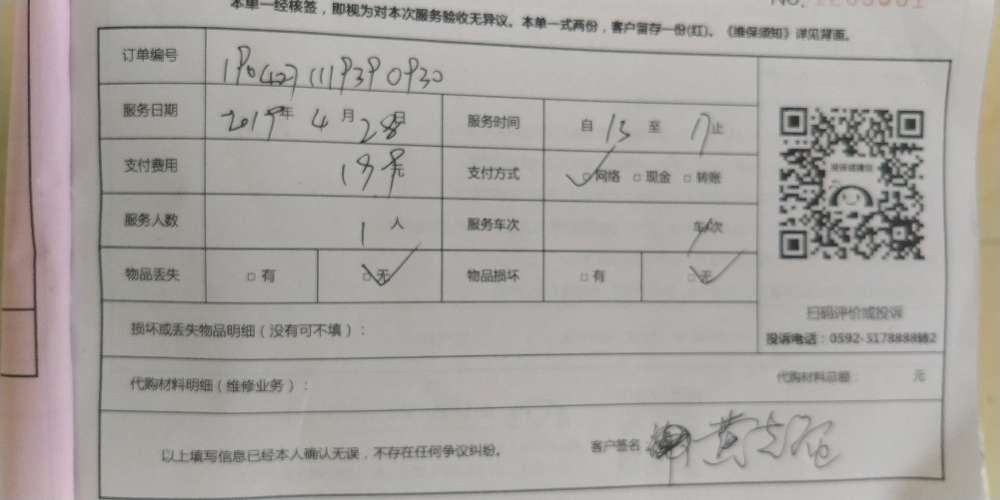 本单一经核签，即视为对本次服务验收无异议。本单一式两份，客户留存一份(红)。《维保须知》详见背面。
NO.
订单编号
服务日期 2019年 4月 28日 服务时间 自 13 至 17 止
支付费用 元 支付方式 □网络 □现金 □转账
服务人数 1 人 服务车次 车/次
物品丢失 □有 □无 物品损坏 □有 □无
扫码评价或投诉
损坏或丢失物品明细（没有可不填）：
投诉电话：0592-5178888转2
代购材料明细（维修业务）： 代购材料总额： 元
以上填写信息已经本人确认无误，不存在任何争议纠纷。 客户签名